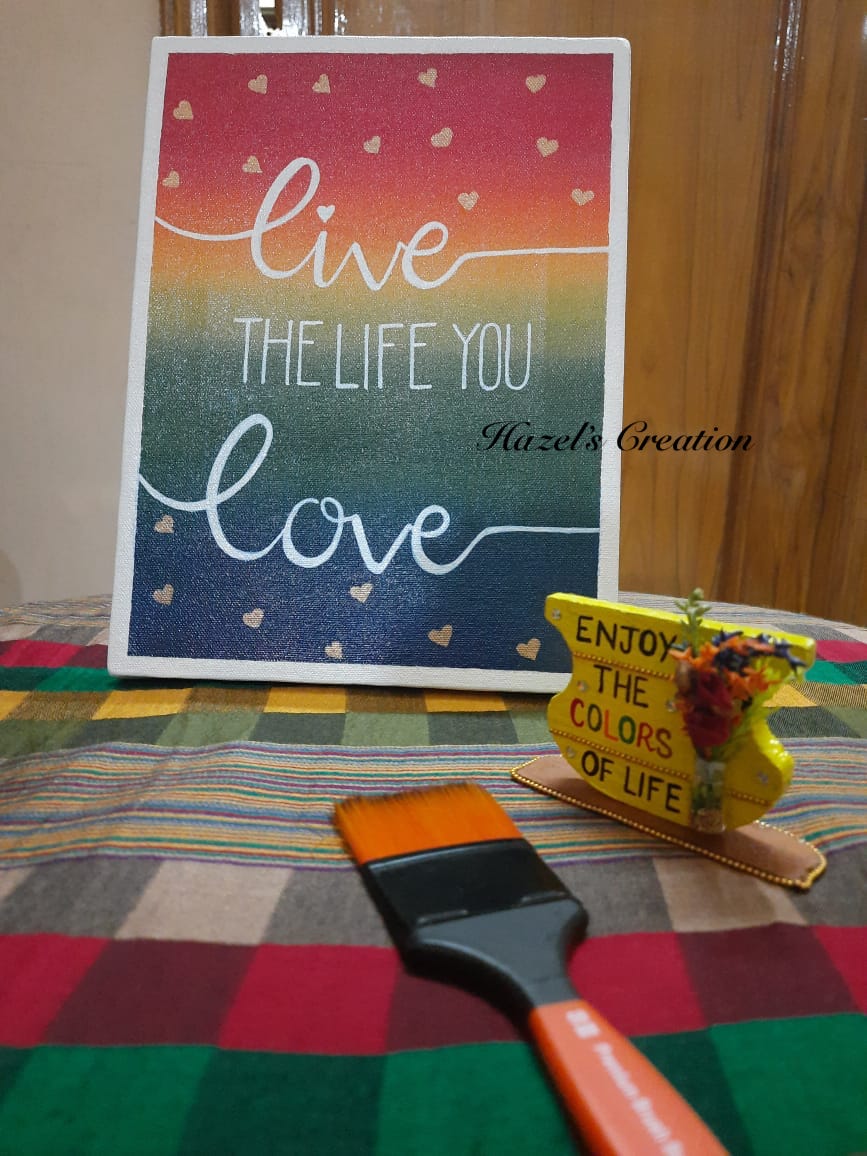 live
THE LIFE YOU
love
Hazel's Creation
ENJOY
THE
COLORS
OF LIFE
Premium Brush